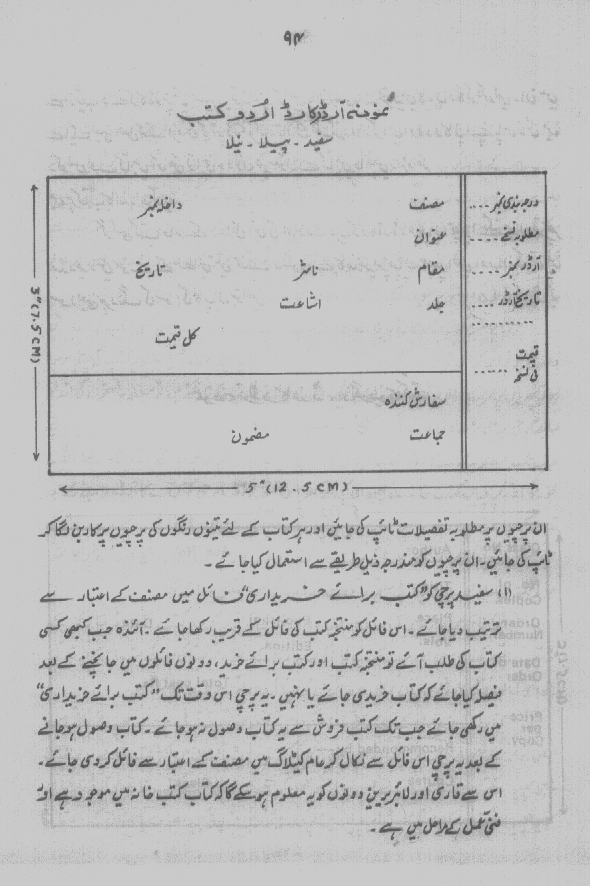 ۹۴
نمونہ آرڈر کارڈ اُردو کتب
سفید ۔ پیلا ۔ نیلا
درجہ بندی نمبر .... مصنف داخلہ نمبر
مطلوبہ نسخے .... عنوان
آرڈر نمبر .... مقام ناشر تاریخ
تاریخ آرڈر .... جلد اشاعت
...........
کل قیمت
قیمت
فی نسخہ ......
سفارش کنندہ
جماعت مضمون
3" (7.5 CM)
5" (12.5 CM)
ان پرچیوں پر مطلوبہ تفصیلات ٹائپ کی جائیں اور ہر کتاب کے لئے تینوں رنگوں کی پرچیوں پر کاربن لگا کر
ٹائپ کی جائیں ۔ ان پرچیوں کو مندرجہ ذیل طریقے سے استعمال کیا جائے ۔
(۱) سفید پرچی کو "کتب برائے خریداری" فائل میں مصنف کے اعتبار سے
ترتیب دیا جائے ۔ اس فائل کو منتخبہ کتب کی فائل کے قریب رکھا جائے ۔ آئندہ جب کبھی کسی
کتاب کی طلب آئے تو منتخبہ کتب اور کتب برائے خرید، دونوں فائلوں میں جانچنے کے بعد
فیصلہ کیا جائے کہ کتاب خریدی جائے یا نہیں ۔ یہ پرچی اس وقت تک "کتب برائے خریداری"
میں رکھی جائے جب تک کتب فروش سے یہ کتاب وصول نہ ہو جائے ۔ کتاب وصول ہو جانے
کے بعد یہ پرچی اس فائل سے نکال کر عام کیٹلاگ میں مصنف کے اعتبار سے فائل کر دی جائے ۔
اس سے قاری اور لائبریرین دونوں کو یہ معلوم ہو سکے گا کہ کتاب کتب خانہ میں موجود ہے اور
فنی عمل کے مراحل میں ہے ۔